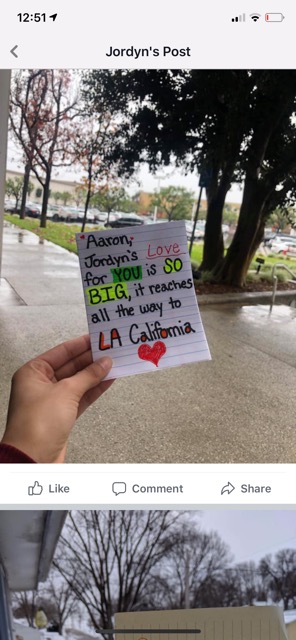 12:51
Jordyn's Post
Aaron,
Jordyn's Love
for YOU is SO
BIG, it reaches
all the way to
LA California
Like Comment Share